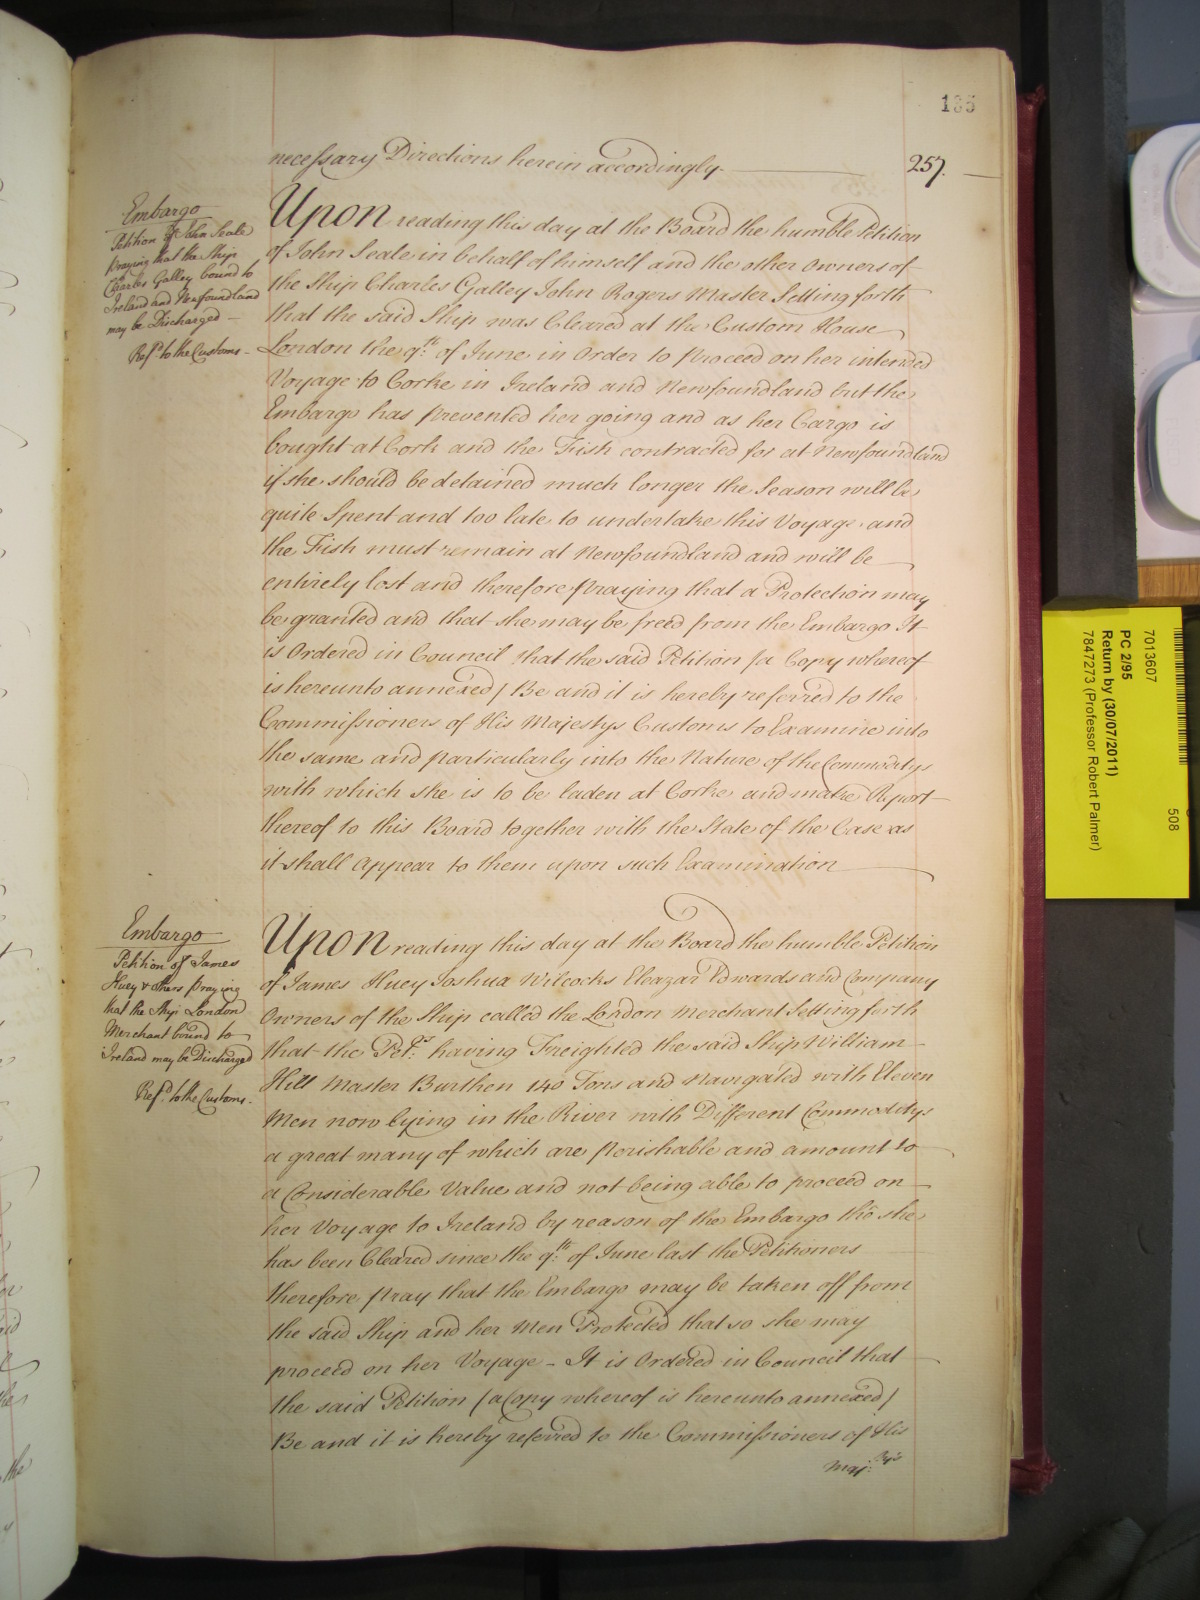 135
necessary Directions herein accordingly.
257.
Embargo
Petition of John Seale
praying that the Ship
Charles Galley bound to
Ireland and Newfoundland
may be Discharged
Ref.d to the Customs
Upon reading this day at the Board the humble Petition
of John Seale in behalf of himself and the other Owners of
the Ship Charles Galley John Rogers Master Setting forth
that the said Ship was Cleared at the Custom House
London the 9th of June in Order to proceed on her intended
Voyage to Corke in Ireland and Newfoundland but the
Embargo has prevented her going and as her Cargo is
bought at Cork and the Fish contracted for at Newfoundland
if she should be detained much longer the Season will be
quite Spent and too late to undertake this Voyage and
the Fish must remain at Newfoundland and will be
entirely lost and therefore praying that a Protection may
be granted and that she may be freed from the Embargo It
is Ordered in Council that the said Petition /a Copy whereof
is hereunto annexed/ Be and it is hereby referred to the
Commissioners of His Majestys Customs to Examine into
the same and particularly into the Nature of the Commoditys
with which she is to be laden at Corke and make Report
thereof to this Board together with the State of the Case as
it shall appear to them upon such Examination
Embargo
Petition of James
Huey & others praying
that the Ship London
Merchant bound to
Ireland may be Discharged
Ref.d to the Customs.
Upon reading this day at the Board the humble Petition
of James Huey Joshua Wilcocks Eleazar Edwards and Company
Owners of the Ship called the London Merchant Setting forth
that the Pet.rs having Freighted the said Ship William
Hill Master Burthen 140 Tons and Navigated with Eleven
Men now lying in the River with Different Commoditys
a great many of which are perishable and amount to
a Considerable Value and not being able to proceed on
her Voyage to Ireland by reason of the Embargo tho she
has been Cleared since the 9th of June last the Petitioners
therefore pray that the Embargo may be taken off from
the said Ship and her Men Protected that so she may
proceed on her Voyage - It is Ordered in Council that
the said Petition /a Copy whereof is hereunto annexed/
Be and it is hereby referred to the Commissioners of His
Maj.tys
7013607
508
PC 2/95
Return by (30/07/2011)
7847273 (Professor Robert Palmer)